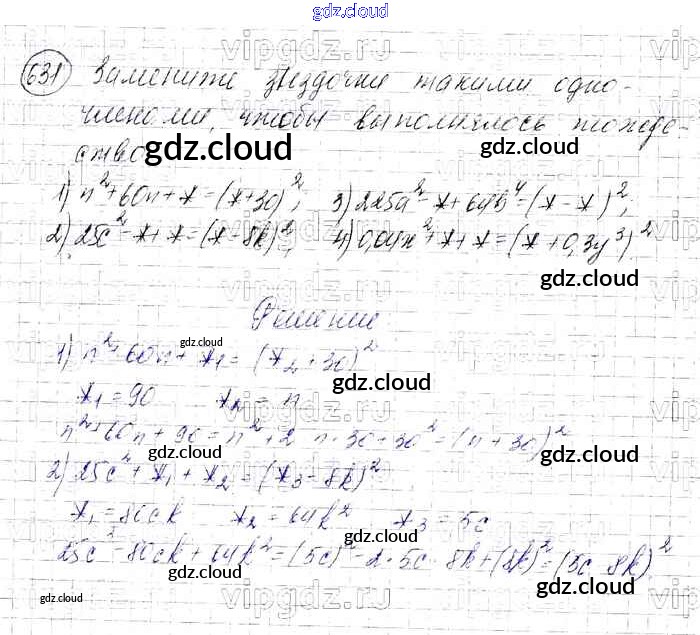 gdz.cloud
631 Замените звездочки такими одно-
членами, чтобы выполнялось тождес-
ство
gdz.cloud
gdz.cloud
1) n²+60n+*=(*+30)²; 3) 225a²-*+64b⁴=(*-*)²;
2) 25c²-*+*=(*-8k)²; 4) 0,04x²+*+*=(*+0,3y³)²
gdz.cloud
Решение
gdz.cloud
1) n²+60n+*₁=(*₂+30)²
gdz.cloud
*₁=90 *₂=n
n²+60n+90=n²+2·n·30+30²=(n+30)²
gdz.cloud
gdz.cloud
2) 25c²+*₁+*₂=(*₃-8k)²
*₁=80ck *₂=64k² *₃=5c
gdz.cloud
25c²-80ck+64k²=(5c)²-2·5c·8k+(8k)²=(5c-8k)²
gdz.cloud
gdz.cloud
gdz.cloud
vipgdz.ru